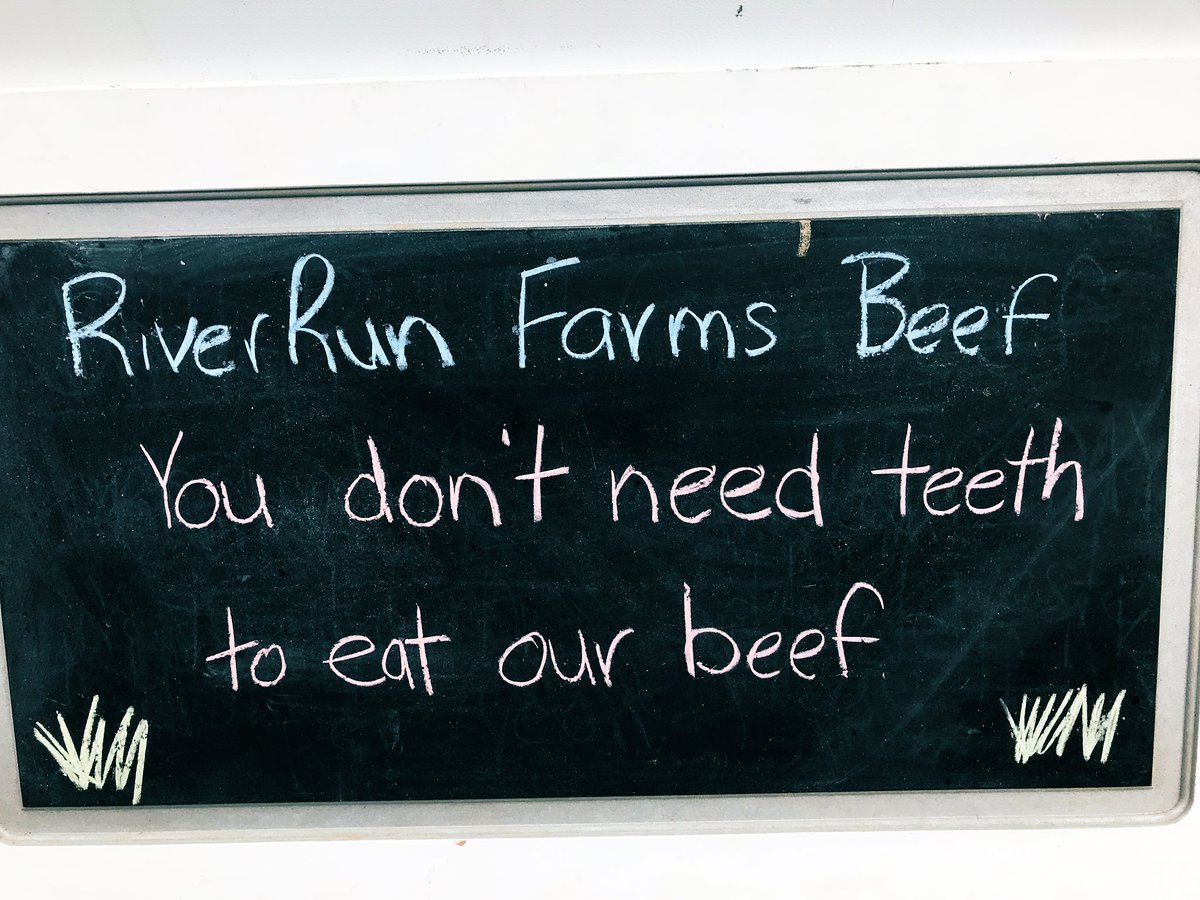 RiverRun Farms Beef
You don't need teeth
to eat our beef